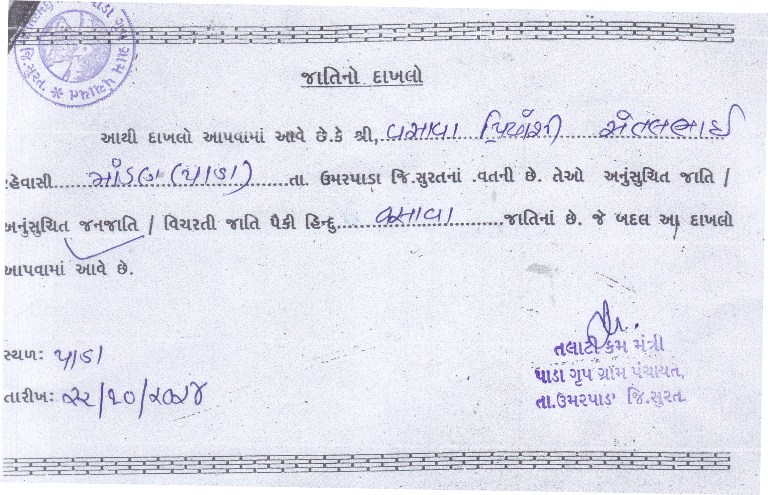 જાતિનો દાખલો
આથી દાખલો આપવામાં આવે છે.કે શ્રી, વસાવા પ્રિયાંશી
રહેવાસી માંડણ (પાડા) તા. ઉમરપાડા જિ.સુરતનાં .વતની છે. તેઓ અનુંસુચિત જાતિ /
અનુંસુચિત જનજાતિ / વિચરતી જાતિ પૈકી હિન્દુ વસાવા જાતિનાં છે. જે બદલ આ દાખલો
આપવામાં આવે છે.
સ્થળઃ પાડા
તારીખઃ ૨૨/૧૦/૨૦૨૪
તલાટી કમ મંત્રી
પાડા ગૃપ ગ્રામ પંચાયત,
તા.ઉમરપાડા જિ.સુરત.